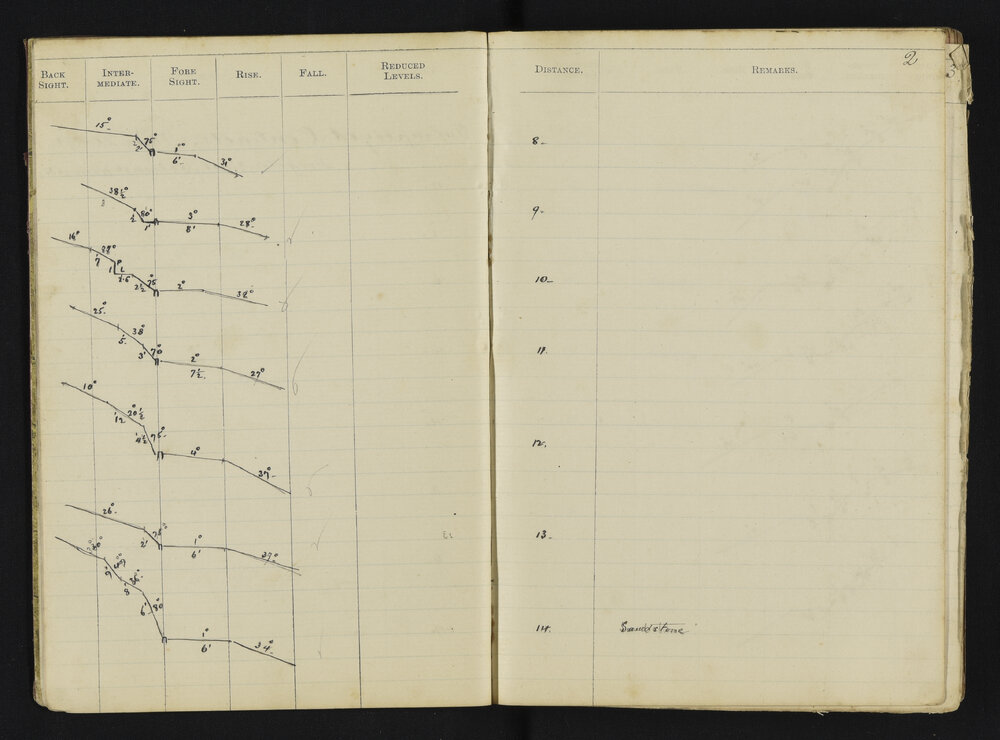 BACK SIGHT. INTER-MEDIATE. FORE SIGHT. RISE. FALL. REDUCED LEVELS. DISTANCE. REMARKS.
2
3
15° 75° 1° 31°
2' 6'
8-
38½° 80° 3° 28°
½ 1' 8'
9-
16° 75 2° 32°
7 1 2½
10-
25° 38° 70° 2° 27°
5' 3' 7½
11.
10° 20½° 75° 4° 37°
12 4½
12.
26° 75° 1° 37°
2' 6'
13.
30° 80 1° 34°
9' 8' 6' 6'
14. Sandstone